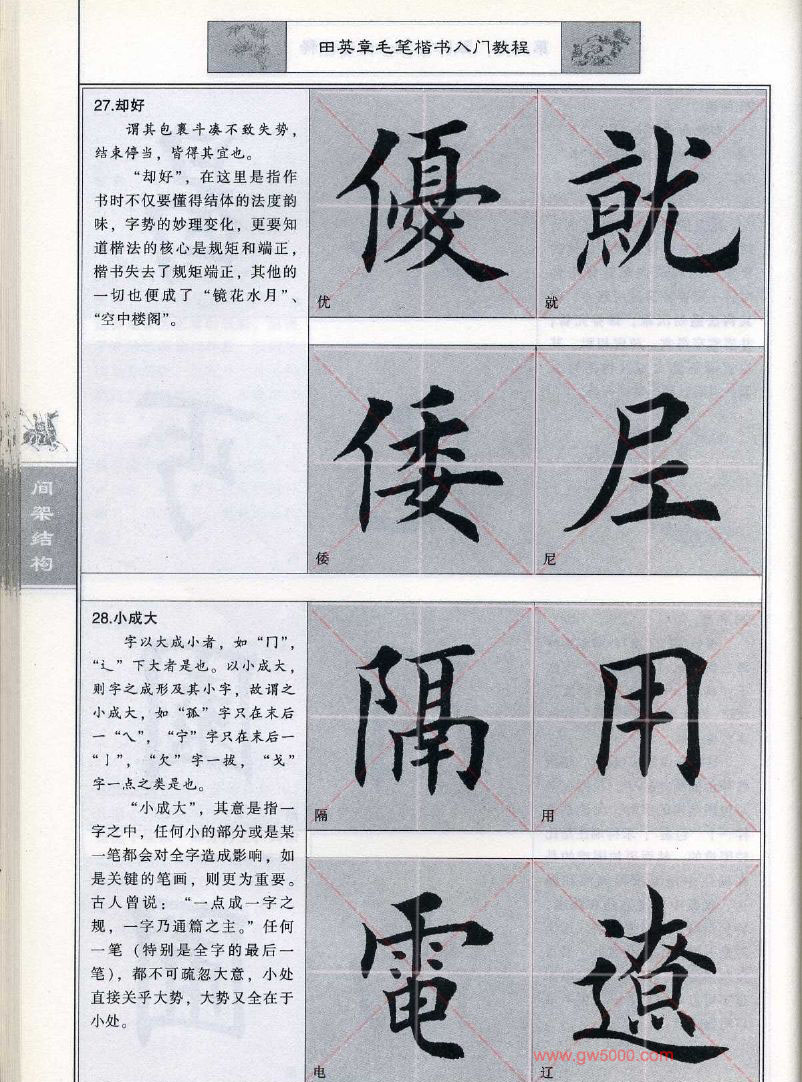 田英章毛笔楷书入门教程
27.却好
谓其包裹斗凑不致失势，
结束停当，皆得其宜也。
“却好”，在这里是指作
书时不仅要懂得结体的法度韵
味，字势的妙理变化，更要知
道楷法的核心是规矩和端正，
楷书失去了规矩端正，其他的
一切也便成了“镜花水月”、
“空中楼阁”。
優
优
就
就
倭
倭
尼
间架结构
28.小成大
字以大成小者，如“冂”，
“辶”下大者是也。以小成大，
则字之成形及其小字，故谓之
小成大，如“孤”字只在末后
一“乀”，“宁”字只在末后一
“亅”，“欠”字一拔，“戈”
字一点之类是也。
“小成大”，其意是指一
字之中，任何小的部分或是某
一笔都会对全字造成影响，如
是关键的笔画，则更为重要。
古人曾说：“一点成一字之
规，一字乃通篇之主。”任何
一笔（特别是全字的最后一
笔），都不可疏忽大意，小处
直接关乎大势，大势又全在于
小处。
隔
隔
用
用
電
电
遼
辽
www.gw5000.com